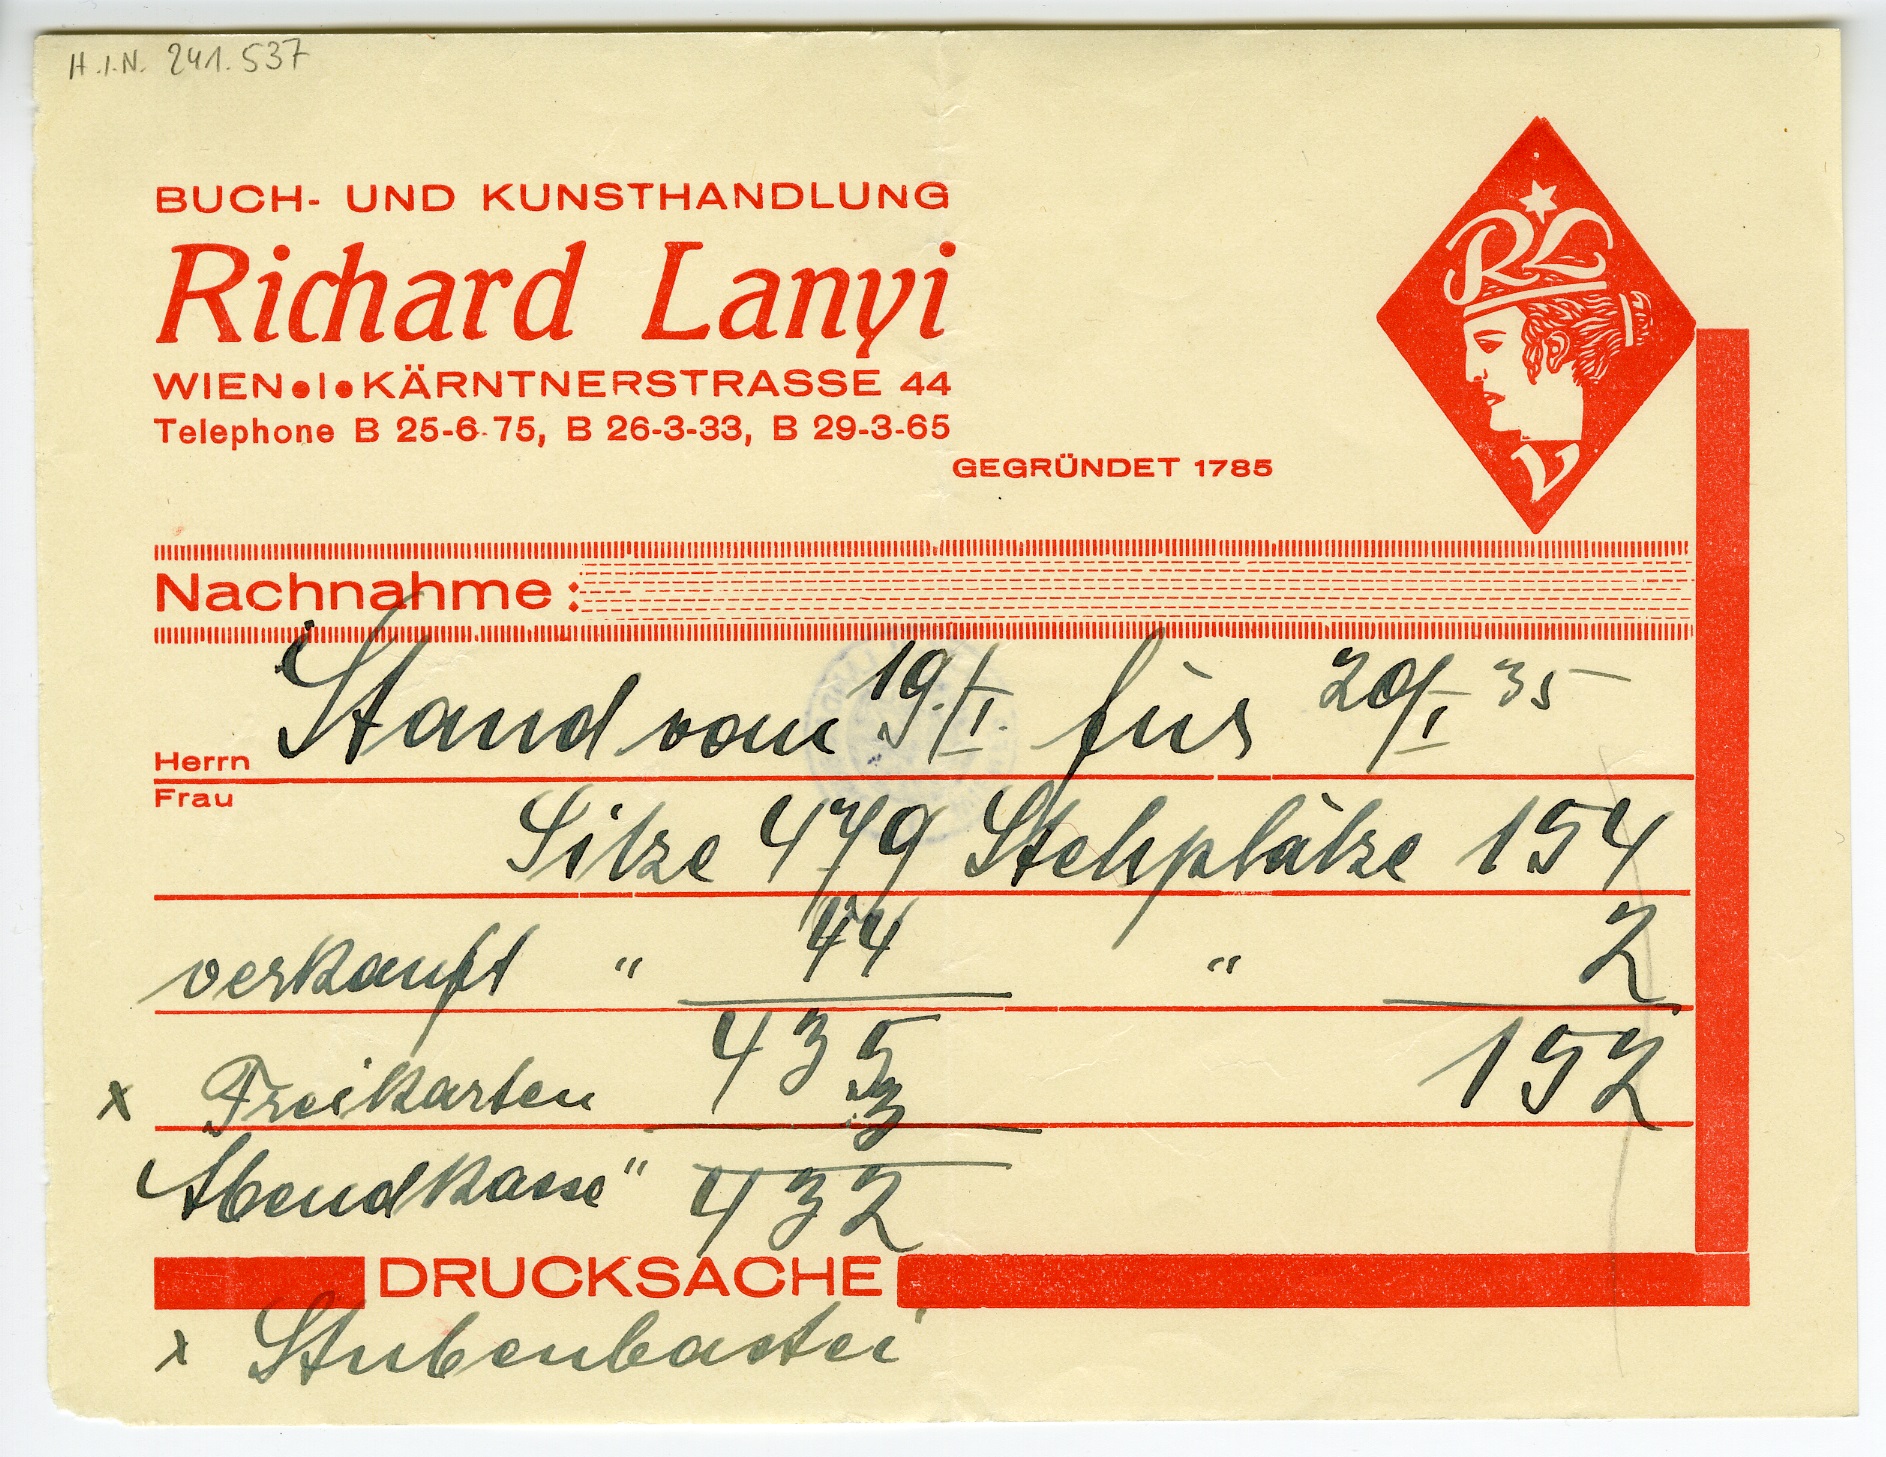 H.I.N. 241.537
BUCH- UND KUNSTHANDLUNG
Richard Lanyi
WIEN•I•KÄRNTNERSTRASSE 44
Telephone B 25-6-75, B 26-3-33, B 29-3-65
GEGRÜNDET 1785
RL
V
Nachnahme:
Stand vom 19./I. für 20/I 35
Herrn
Frau
Sitze 479 Stehplätze 154
verkauft " 44 " 2
435 152
x Freikarten 3
Abendkasse " 432
DRUCKSACHE
x Stubenbastei